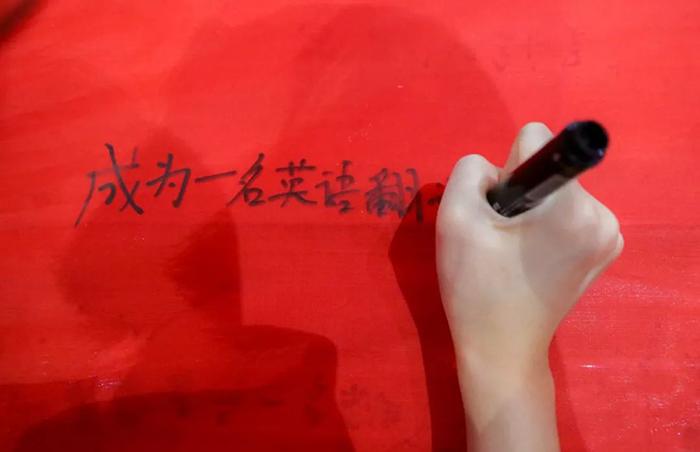 成为一名英语翻